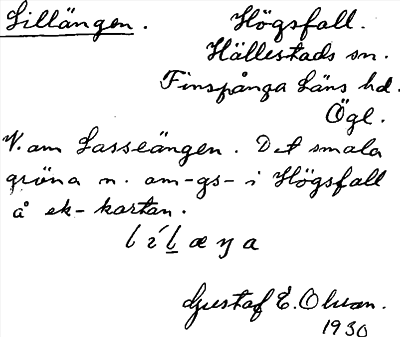 Lillängen. Högsfall.
Hällestads sn.
Finspånga läns hd.
Ögl.
V. om Lasseängen. Det smala
gröna n. om -gs- i Högsfall
å ek-kartan.
lílæŋa
Gustaf E. Olsson.
1930